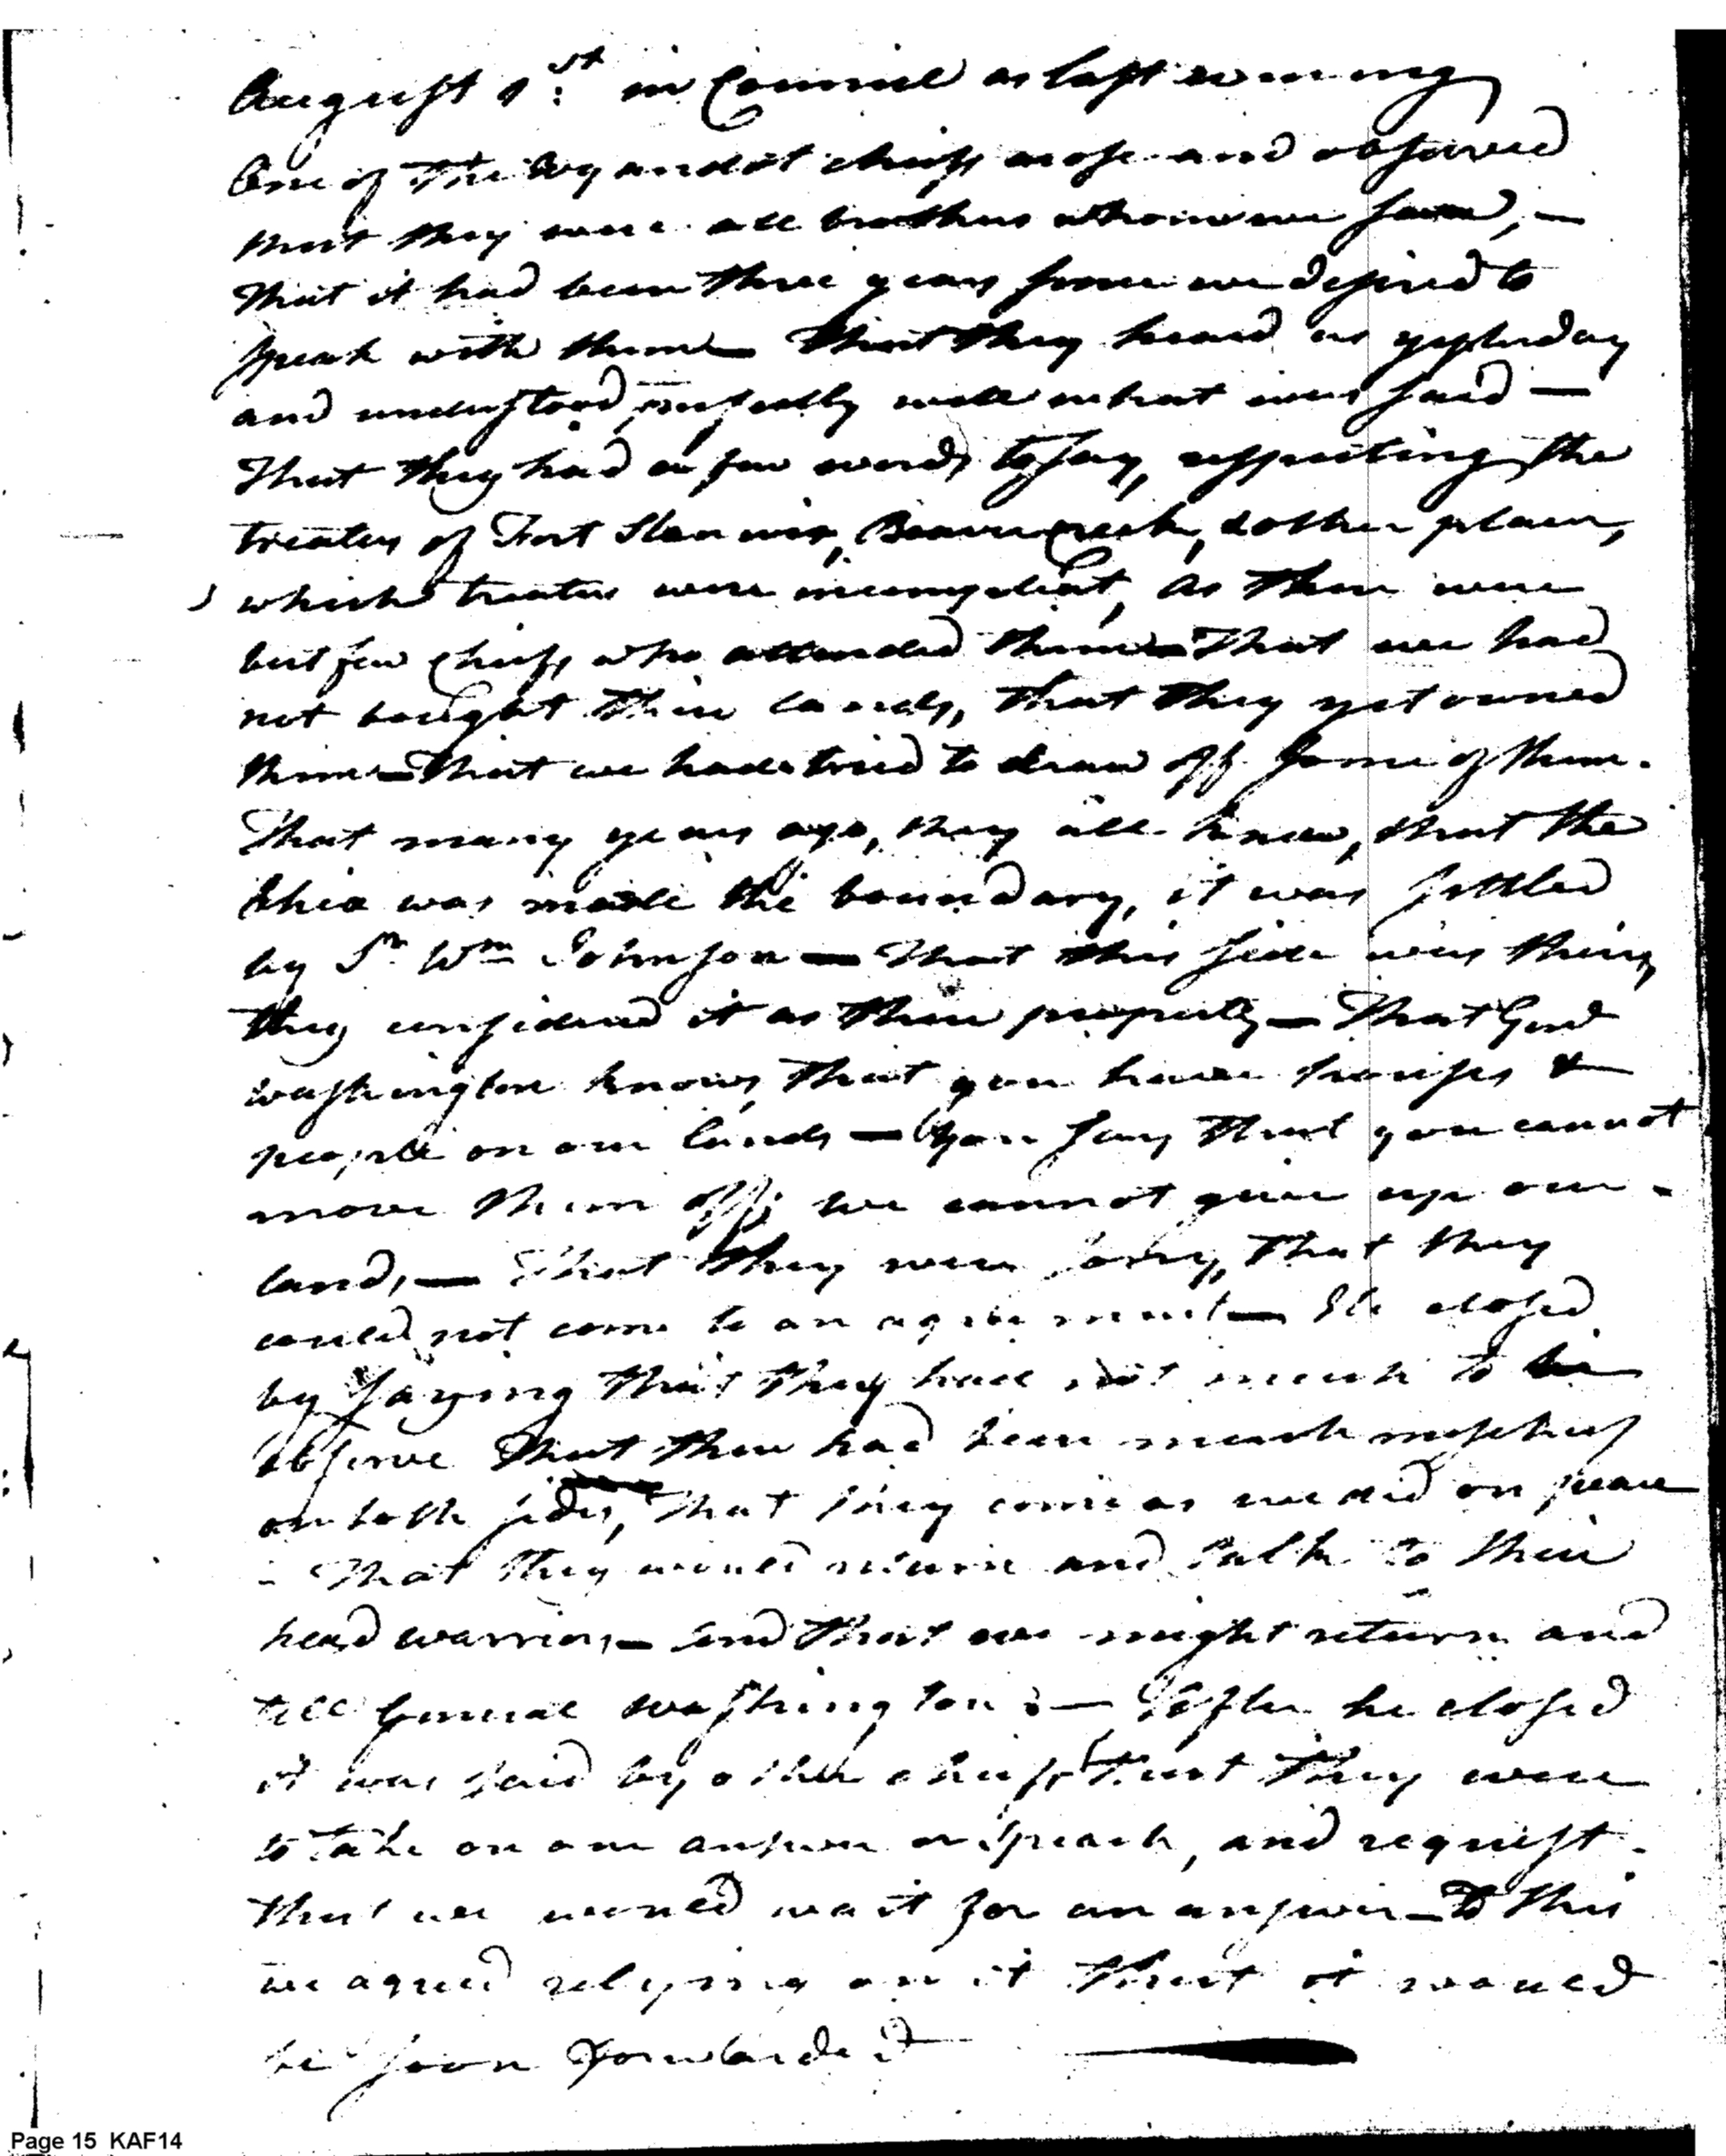 August 1st: in Council as last evening
One of the Wyandot chiefs arose and observed
that they were all brothers whom we saw, —
That it had been three years since we desired to
speak with them — That they heard us yesterday
and understood perfectly well what was said —
That they had a few words to say, respecting the
treaties of Fort Stanwix, Beaver Creek, & other places,
which treaties were incompleat, as there were
but few Chiefs who attended them — That we had
not bought their lands, that they yet owned
them — That we had tried to draw off some of them.
That many years ago, they all knew, that the
Ohio was made the boundary, it was settled
by Sr. Wm Johnson — That this side was theirs,
they considered it as their property — That Genl
Washington knows, that you have houses &
people on our lands — You say that you cannot
move them off; we cannot give up our
land, — That they were sorry, that they
could not come to an agreement — He closed
by saying that they had not much to
observe That there had been much mischief
on both sides, That they came as we did on peace
- That they would return and talk to their
head warriors — and that we might return and
tell General Washington :— After he closed
it was said by other chiefs that they were
to take on our answer or speech, and request
that we would wait for an answer — To this
we agreed relying on it that it would
be soon forwarded —
Page 15 KAF14